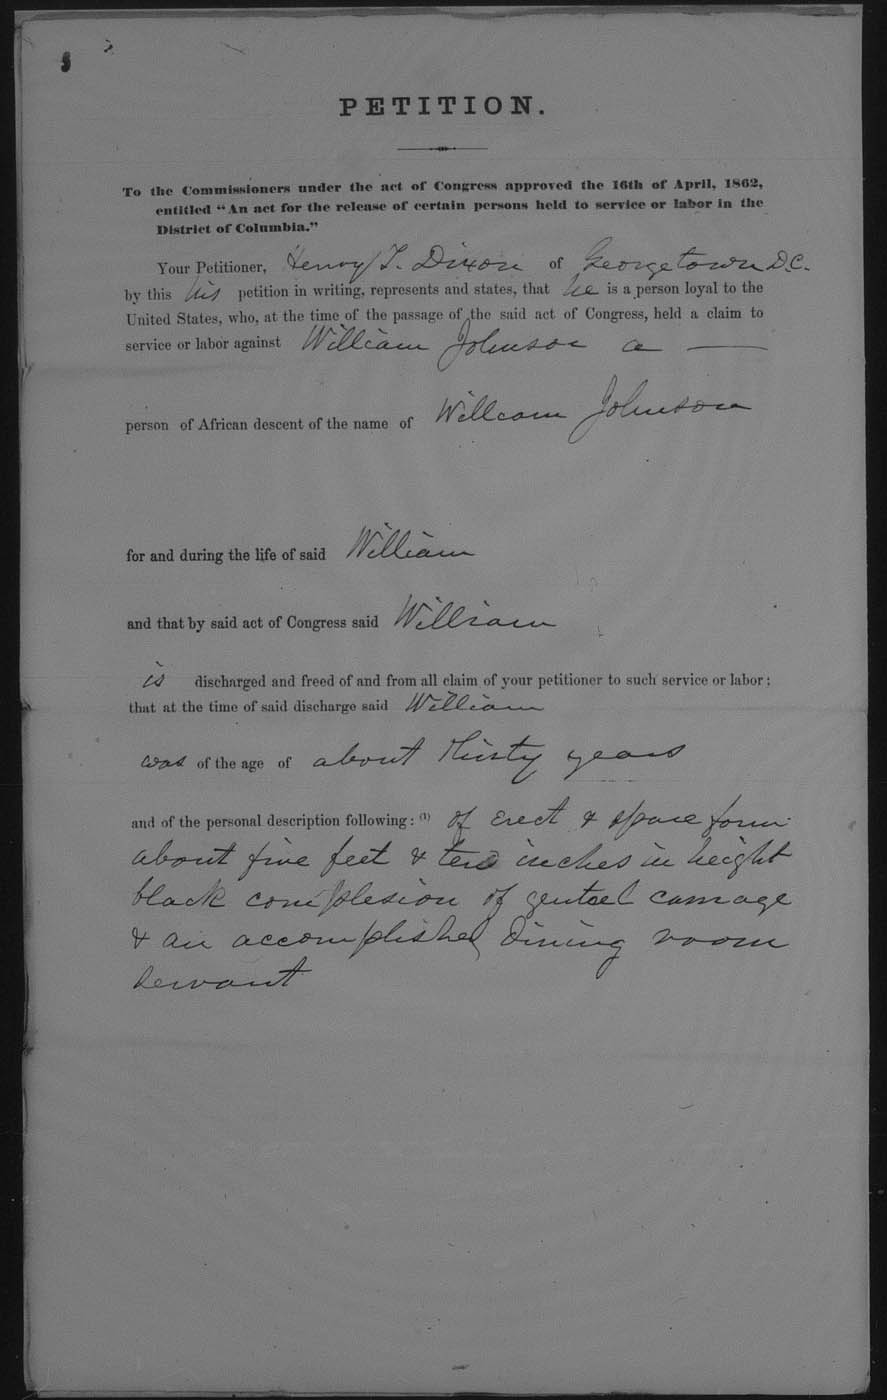 PETITION.
To the Commissioners under the act of Congress approved the 16th of April, 1862,
entitled "An act for the release of certain persons held to service or labor in the
District of Columbia."
Your Petitioner, Henry T. Dixon of Georgetown D.C.
by this his petition in writing, represents and states, that he is a person loyal to the
United States, who, at the time of the passage of the said act of Congress, held a claim to
service or labor against William Johnson a —
person of African descent of the name of William Johnson
for and during the life of said William
and that by said act of Congress said William
is discharged and freed of and from all claim of your petitioner to such service or labor;
that at the time of said discharge said William
was of the age of about thirty years
and of the personal description following: (1) of erect & spare form
about five feet & ten inches in height
black complesion of genteel carriage
& an accomplished dining room
servant